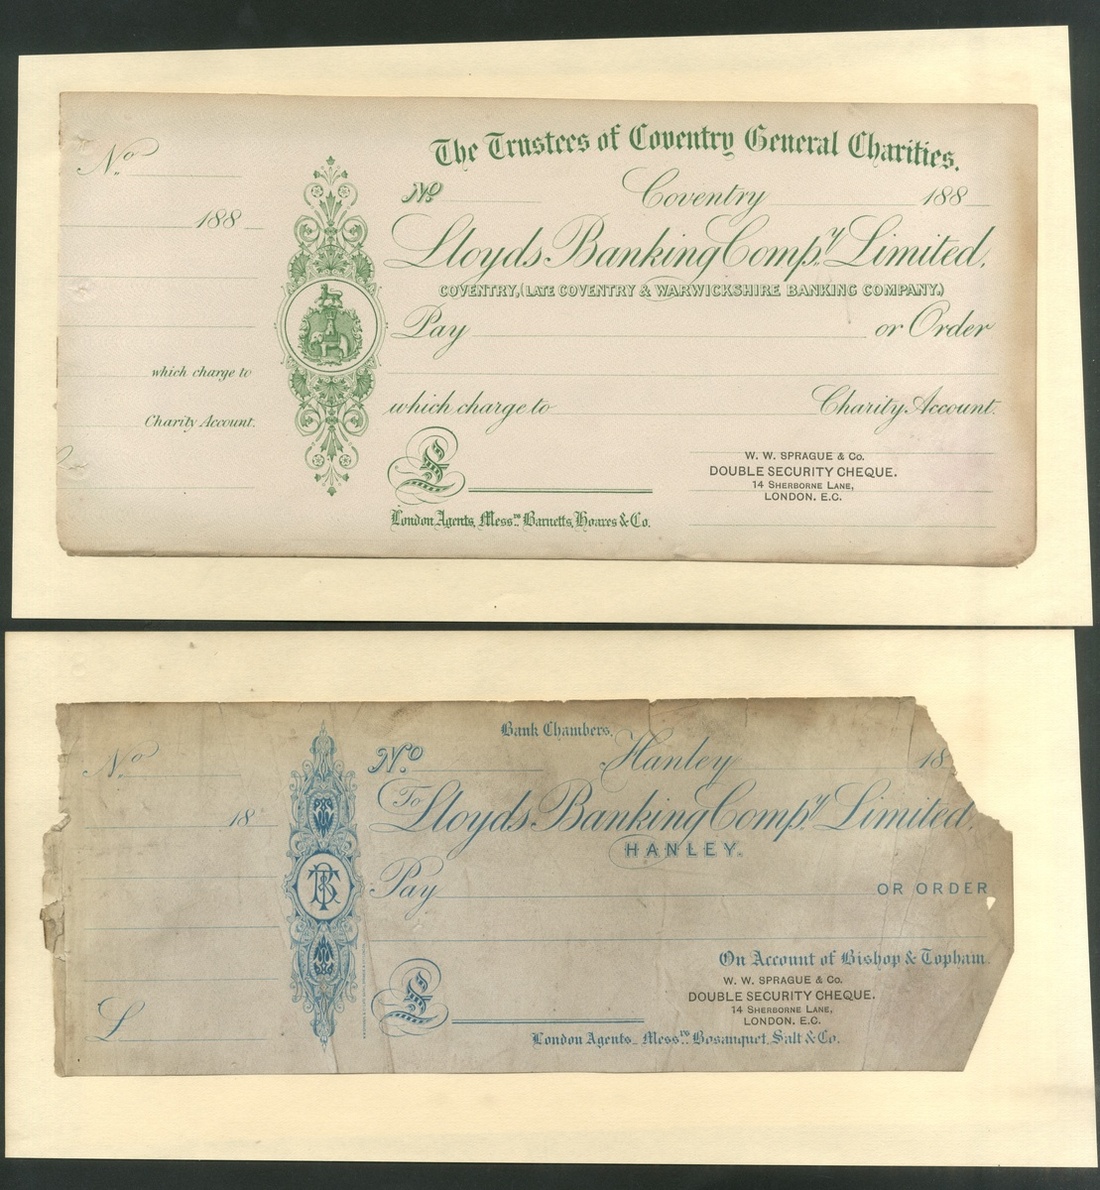 The Trustees of Coventry General Charities.
No.
No
Coventry 188
188
Lloyds Banking Compy. Limited,
COVENTRY, (LATE COVENTRY & WARWICKSHIRE BANKING COMPANY,)
Pay or Order
which charge to
which charge to Charity Account.
Charity Account.
W. W. SPRAGUE & Co.
DOUBLE SECURITY CHEQUE.
14 SHERBORNE LANE,
LONDON. E.C.
£
London Agents, Messrs. Barnetts, Hoares & Co.
Bank Chambers,
No.
No.
Hanley 18
18
To Lloyds Banking Compy. Limited,
HANLEY.
Pay OR ORDER
TB
On Account of Bishop & Topham.
W. W. SPRAGUE & Co.
DOUBLE SECURITY CHEQUE.
14 SHERBORNE LANE,
LONDON. E.C.
£
£
London Agents_ Messrs. Bosanquet, Salt & Co.